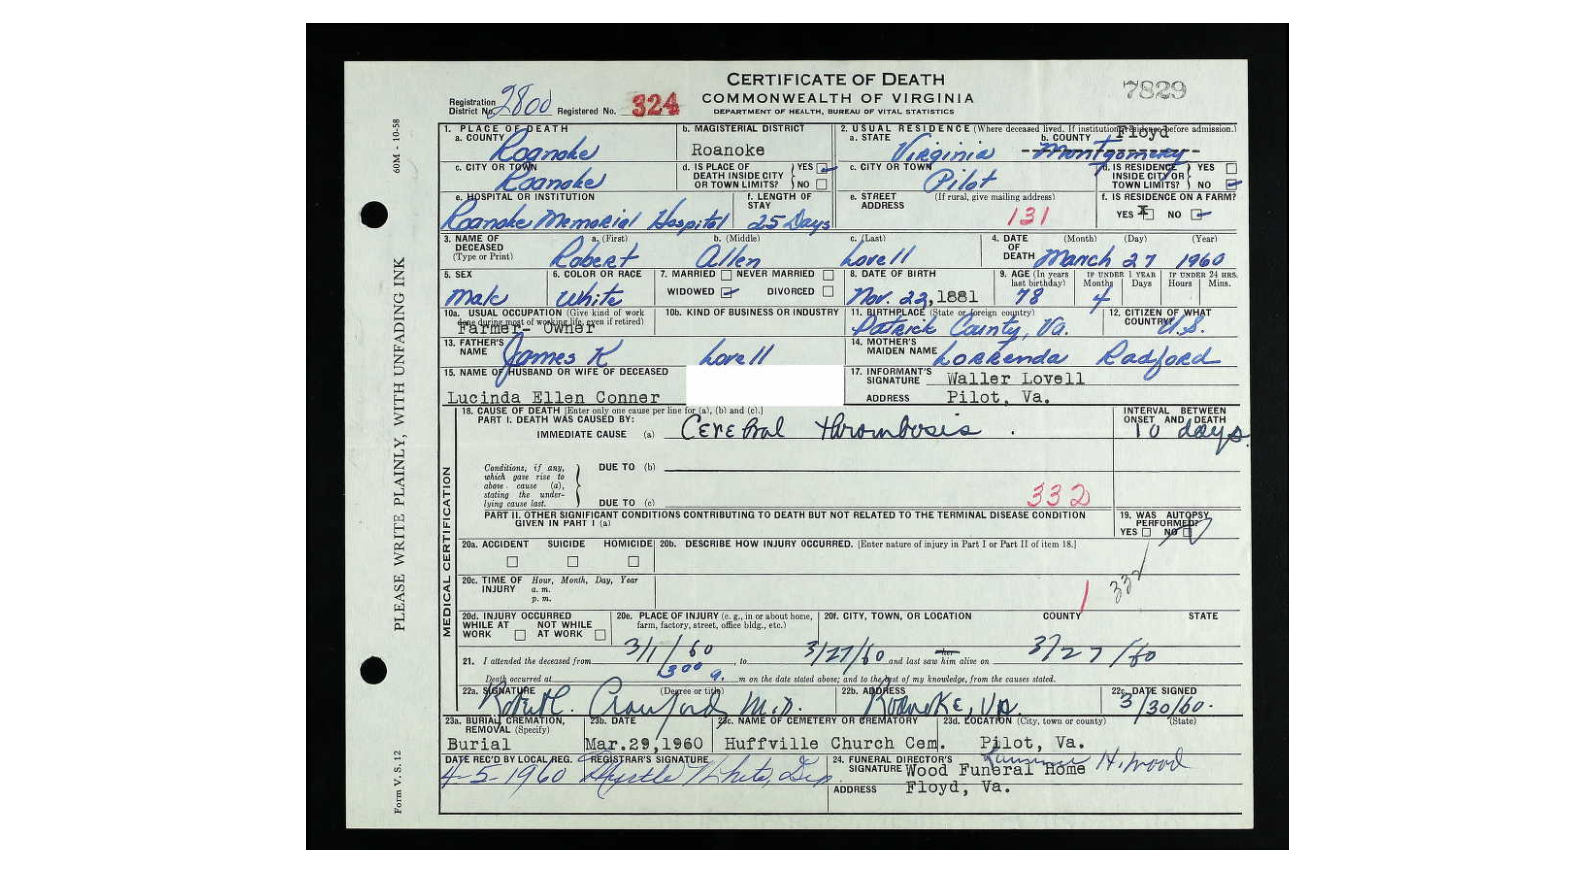 CERTIFICATE OF DEATH
COMMONWEALTH OF VIRGINIA
DEPARTMENT OF HEALTH, BUREAU OF VITAL STATISTICS
7829
Registration District No. 2800 Registered No. 324
60M - 10-58
PLEASE WRITE PLAINLY, WITH UNFADING INK
Form V. S. 12
1. PLACE OF DEATH
a. COUNTY Roanoke
b. MAGISTERIAL DISTRICT Roanoke
2. USUAL RESIDENCE (Where deceased lived. If institution: residence before admission.)
a. STATE Virginia
b. COUNTY Floyd Montgomery
c. CITY OR TOWN Roanoke
d. IS PLACE OF DEATH INSIDE CITY OR TOWN LIMITS? YES NO
c. CITY OR TOWN Pilot
d. IS RESIDENCE INSIDE CITY OR TOWN LIMITS? YES NO
e. HOSPITAL OR INSTITUTION Roanoke Memorial Hospital
f. LENGTH OF STAY 25 Days
e. STREET ADDRESS (If rural, give mailing address) 131
f. IS RESIDENCE ON A FARM? YES X NO
3. NAME OF DECEASED (Type or Print)
a. (First) Robert
b. (Middle) Allen
c. (Last) Lovell
4. DATE OF DEATH (Month) (Day) (Year) March 27 1960
5. SEX Male
6. COLOR OR RACE White
7. MARRIED NEVER MARRIED
WIDOWED DIVORCED
8. DATE OF BIRTH Nov. 22, 1881
9. AGE (In years last birthday) 78
IF UNDER 1 YEAR Months 4 Days
IF UNDER 24 HRS. Hours Mins.
10a. USUAL OCCUPATION (Give kind of work done during most of working life, even if retired) Farmer- Owner
10b. KIND OF BUSINESS OR INDUSTRY
11. BIRTHPLACE (State or foreign country) Patrick County, Va.
12. CITIZEN OF WHAT COUNTRY? U.S.
13. FATHER'S NAME James K Lovell
14. MOTHER'S MAIDEN NAME Lorrenda Radford
15. NAME OF HUSBAND OR WIFE OF DECEASED
Lucinda Ellen Conner
17. INFORMANT'S SIGNATURE Waller Lovell
ADDRESS Pilot, Va.
MEDICAL CERTIFICATION
18. CAUSE OF DEATH [Enter only one cause per line for (a), (b) and (c).]
PART I. DEATH WAS CAUSED BY:
IMMEDIATE CAUSE (a) Cerebral thrombosis.
INTERVAL BETWEEN ONSET AND DEATH
10 days.
Conditions, if any, which gave rise to above cause (a), stating the underlying cause last.
DUE TO (b)
DUE TO (c)
332
PART II. OTHER SIGNIFICANT CONDITIONS CONTRIBUTING TO DEATH BUT NOT RELATED TO THE TERMINAL DISEASE CONDITION GIVEN IN PART I (a)
19. WAS AUTOPSY PERFORMED?
YES NO
20a. ACCIDENT SUICIDE HOMICIDE
20b. DESCRIBE HOW INJURY OCCURRED. [Enter nature of injury in Part I or Part II of item 18.]
20c. TIME OF INJURY Hour, Month, Day, Year
a. m.
p. m.
1 332
20d. INJURY OCCURRED
WHILE AT WORK NOT WHILE AT WORK
20e. PLACE OF INJURY (e. g., in or about home, farm, factory, street, office bldg., etc.)
20f. CITY, TOWN, OR LOCATION COUNTY STATE
21. I attended the deceased from 3/1/60, to 3/27/60 and last saw him her alive on 3/27/60
Death occurred at 3:00 a. m on the date stated above; and to the best of my knowledge, from the causes stated.
22a. SIGNATURE (Degree or title) Robert C. Crawford M.D.
22b. ADDRESS Roanoke, Va.
22c. DATE SIGNED 3/30/60.
23a. BURIAL, CREMATION, REMOVAL (Specify) Burial
23b. DATE Mar.29,1960
23c. NAME OF CEMETERY OR CREMATORY Huffville Church Cem.
23d. LOCATION (City, town or county) (State) Pilot, Va.
DATE REC'D BY LOCAL REG. 4-5-1960
REGISTRAR'S SIGNATURE Myrtle White, Dep.
24. FUNERAL DIRECTOR'S SIGNATURE Wood Funeral Home H. Wood
ADDRESS Floyd, Va.